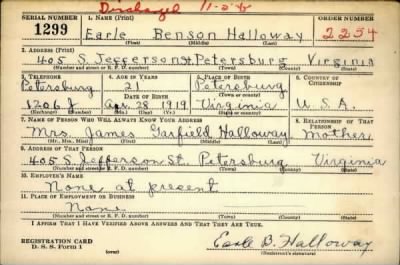 Discharged 11-5-
SERIAL NUMBER 1. NAME (Print) ORDER NUMBER
1299 Earle Benson Halloway 2254
(First) (Middle) (Last)
2. ADDRESS (Print)
405 S. Jefferson St. Petersburg Virginia
(Number and street or R. F. D. number) (Town) (County) (State)
3. TELEPHONE 4. AGE IN YEARS 5. PLACE OF BIRTH 6. COUNTRY OF CITIZENSHIP
Petersburg 21 Petersburg
DATE OF BIRTH (Town or county)
1206 J Apr. 28 1919 Virginia U.S.A.
(Mo.) (Day) (Yr.) (State or country)
7. NAME OF PERSON WHO WILL ALWAYS KNOW YOUR ADDRESS 8. RELATIONSHIP OF THAT PERSON
Mrs. James Garfield Halloway Mother
(Mr., Mrs., Miss) (First) (Middle) (Last)
9. ADDRESS OF THAT PERSON
405 S. Jefferson St. Petersburg Virginia
(Number and street or R. F. D. number) (Town) (County) (State)
10. EMPLOYER'S NAME
None at present
11. PLACE OF EMPLOYMENT OR BUSINESS
None
(Number and street or R. F. D. number) (Town) (County) (State)
I AFFIRM THAT I HAVE VERIFIED ABOVE ANSWERS AND THAT THEY ARE TRUE.
REGISTRATION CARD
D. S. S. Form 1 Earle B. Halloway
(Registrant's signature)